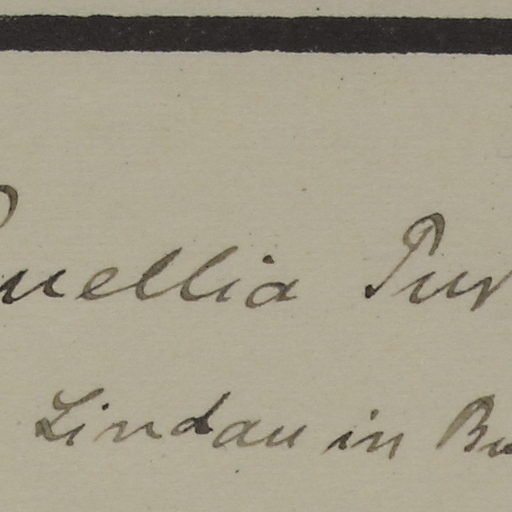 Ruellia Pur
Lindau in Bu